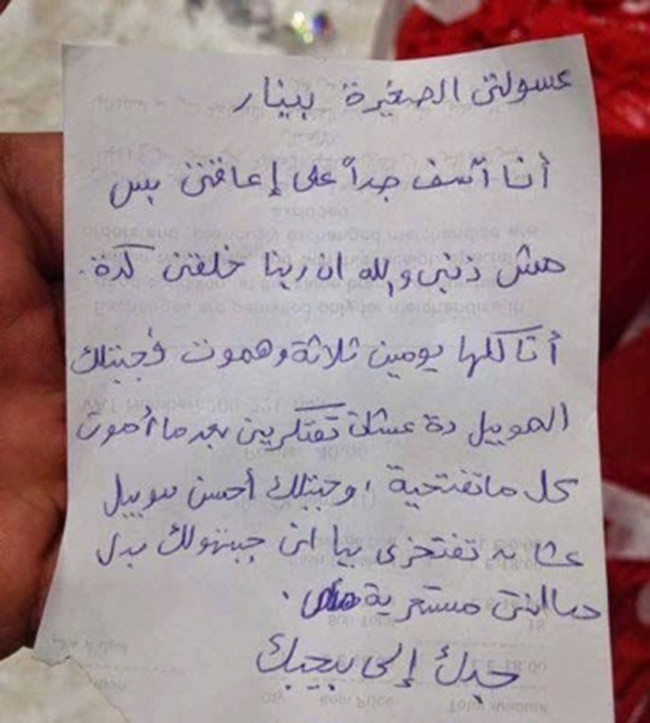 عسولتى الصغيرة بينار
أنا آسف جداً على إعاقتى بس
مش ذنبى والله ان ربنا خلقنى كدة.
أنا كلها يومين ثلاثة وهموت فجبتلك
الموبيل دة عشان تفتكرينى بعد ما أموت
كل ما تفتحية ، وجبتلك أحسن موبيل
عشان تفتخرى بيا انى جبتهولك بدل
ما انتى مستعرية منى .
جدك إلى بيحبك